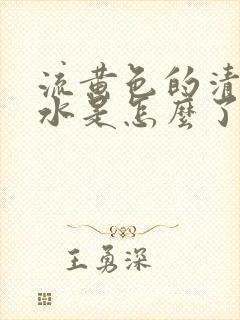 流黄色的清
水是怎麼了
王勇深